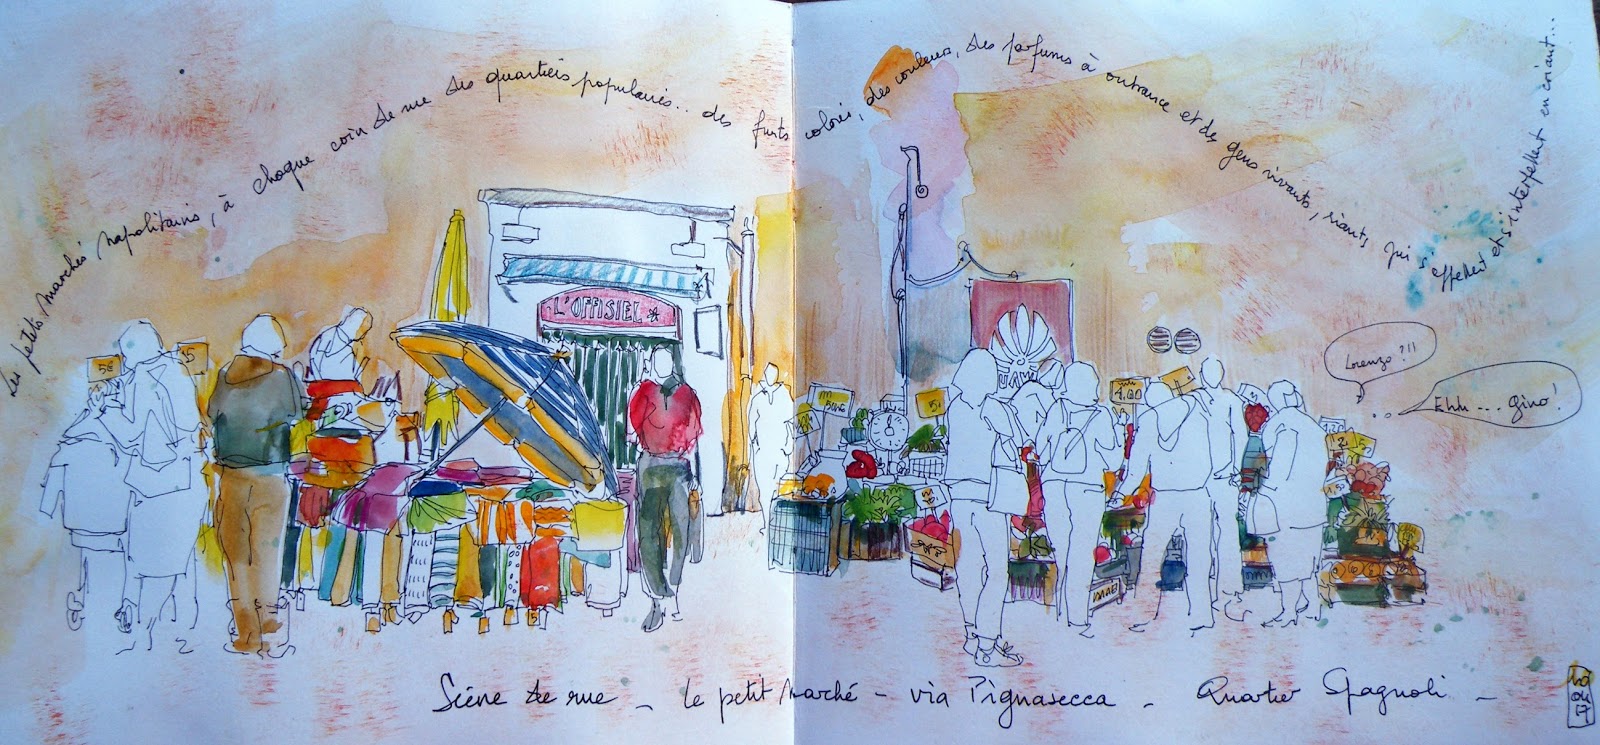 Les petits marchés napolitains, à chaque coin de rue des quartiers populaires... des fruits colorés, des couleurs, des parfums à outrance et des gens vivants, riants qui s'appellent et s'interpellent en criant...
L'OFFISIEL
5€
15
5
1,00
1,20
2
5
1.50
Lorenzo ?!!
Ehh ... Gino !
Scène de rue _ le petit marché - via Pignasecca - Quartier Spagnoli -